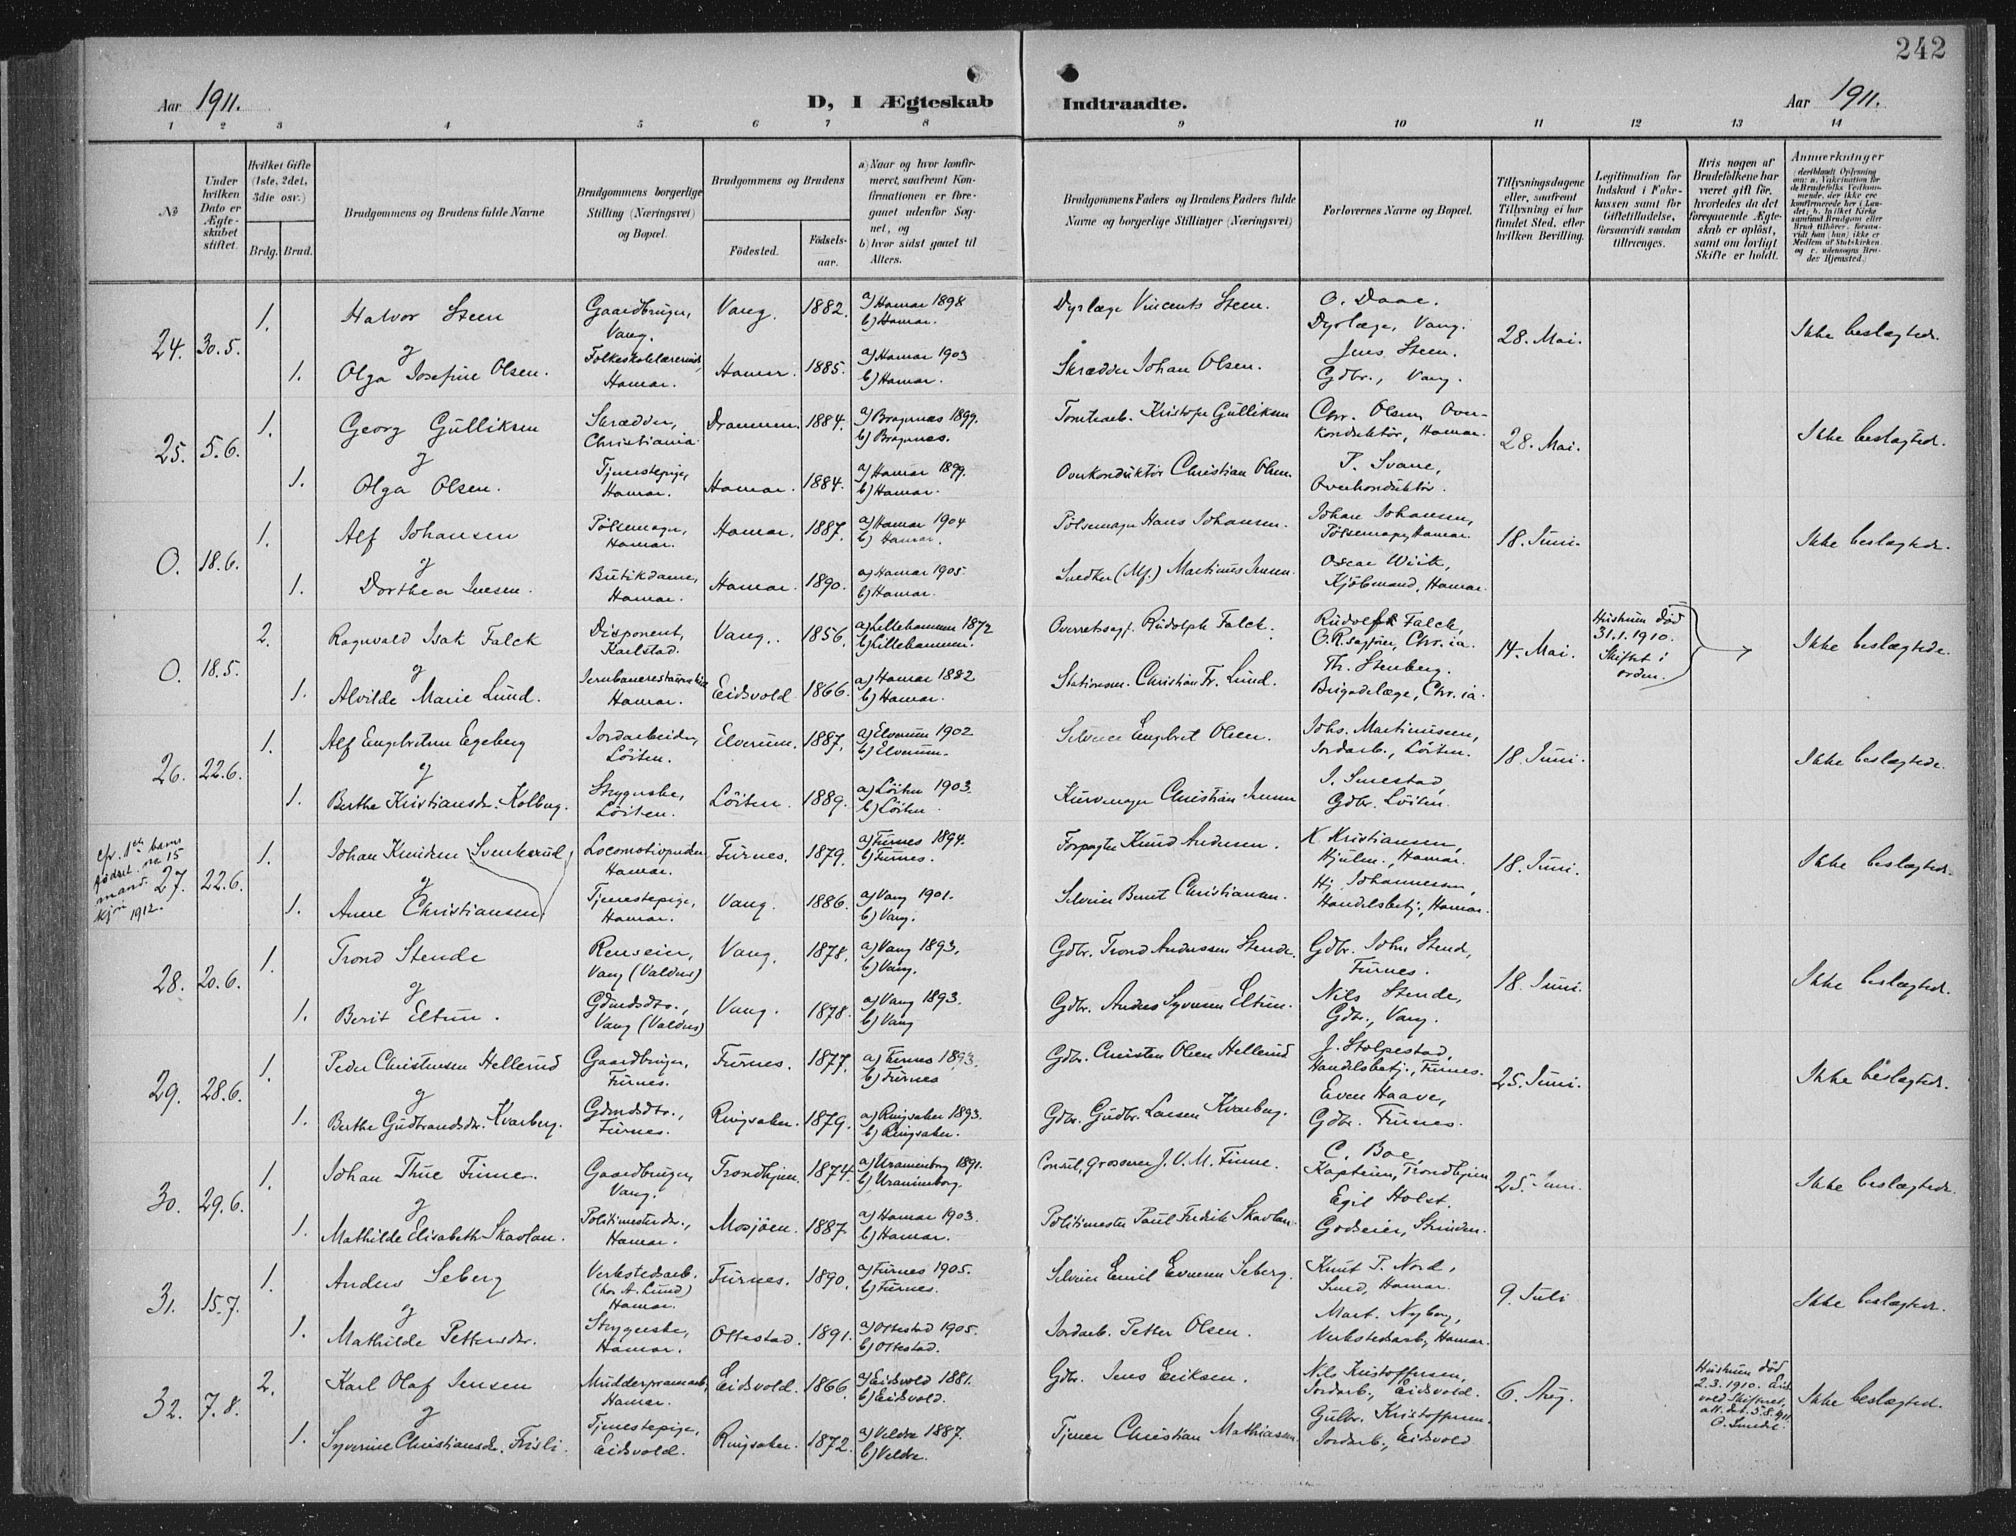 242
Aar 1911.
D, I Ægteskab Indtraadte.
Aar 1911.
1 2 3 4 5 6 7 8 9 10 11 12 13 14
No
Under hvilken Dato er Ægteskabet stiftet.
Hvilket Gifte (1ste, 2det, 3die osv.)
Brdg. Brud.
Brudgommens og Brudens fulde Navne
Brudgommens borgerlige Stilling (Næringsvei) og Bopæl.
Brudgommens og Brudens
Fødested.
Fødsels-aar.
a) Naar og hvor konfirmeret, saafremt Konfirmationen er foregaaet udenfor Sognet, og
b) hvor sidst gaaet til Alters.
Brudgommens Faders og Brudens Faders fulde Navne og borgerlige Stillinger (Næringsvei)
Forlovernes Navne og Bopæl.
Tillysningsdagene eller, saafremt Tillysning ei har fundet Sted, efter hvilken Bevilling.
Legitimation for Indskud i Enkekassen samt for Giftetilladelse, forsaavidt saadan tiltrænges.
Hvis nogen af Brudefolkene har været gift før, hvorledes da det foregaaende Ægteskab er opløst, samt om lovligt Skifte er holdt.
Anmerkninger (deriblandt Oplysning om: a. Vakcination for de Brudefolks Vedkommende, der ikke ere konfirmerede her i Landet; b. hvilket Kirkesamfund Brudgom eller Brud tilhører, forsaavidt han (hun) ikke er Medlem af Statskirken, og c. udensogns Brudes Hjemsted.)
24. 30.5. 1. Halvor Steen Gaardbruger, Vang. Vang. 1882. a) Hamar 1898 b) Hamar. Dyrlæge Vincents Steen. O. Daae. Dyrlæge, Vang. 28. Mai. Ikke beslægtede.
og
1. Olga Josefine Olsen. Folkeskolelærerinde, Hamar. Hamar. 1885. a) Hamar 1903 b) Hamar. Skrædder Johan Olsen. Jens Steen. Gdbr., Vang.
25. 5.6. 1. Georg Gulliksen Skrædder, Christiania Drammen. 1884. a) Bragernæs 1899. b) Bragernæs. Tomtearb. Kristofer Gulliksen Chr. Olsen, Overkonduktør, Hamar. 28. Mai. Ikke beslægtede.
og
1. Olga Olsen. Tjenestepige, Hamar. Hamar. 1884. a) Hamar 1899. b) Hamar. Overkonduktør Christian Olsen. P. Svane, Overkonduktør.
0. 18.6. 1. Alf Johansen Pølsemager, Hamar. Hamar. 1887. a) Hamar 1904 b) Hamar. Pølsemager Hans Johansen. Johan Johansen, Pølsemager, Hamar. 18. Juni. Ikke beslægtede.
og
1. Dorthea Jensen. Butikdame, Hamar. Hamar. 1890. a) Hamar 1905. b) Hamar. Snedker (Mf.) Martinus Jensen. Oscar Wiik, Kjøbmand, Hamar.
0. 18.5. 2. Ragnvald Isak Falck Disponent, Karlstad. Vang. 1856. a) Lillehammer 1872 b) Lillehammer. Overretssagf. Rudolph Falck. Rudolf Falck, O.R.sagfører, Chr.ia. 14. Mai. Hustruen død 31.1.1910. Skiftet i orden. Ikke beslægtede.
og
1. Alvilde Marie Lund. Hamar. Eidsvold 1866. a) Hamar 1882 b) Hamar. Stationsm. Christian Fr. Lund. Th. Stenberg. Brigadelæge, Chr.ia.
26. 22.6. 1. Alf Engebretsen Egeberg Jordarbeider, Löiten. Elverum. 1887. a) Elverum 1902 b) Elverum. Selveier Engebret Olsen. Johs. Martinussen, Jordarb., Löiten. 18. Juni. Ikke beslægtede.
og
1. Berthe Kristiansdr. Kolberg. Strygerske, Löiten. Löiten. 1889. a) Löiten 1903. b) Löiten. Kurvmager Christian Jensen J. Smestad, Gdbr. Löiten.
27. 22.6. 1. Johan Knudsen Svenkerud Locomotivpudser, Hamar. Furnes. 1879. a) Furnes 1894. b) Furnes. Forpagter Knud Andersen. K. Kristiansen, Hjulm., Hamar. 18. Juni. Ikke beslægtede.
cfr. 1ste barns fødsel. no 15 mand. kjøn 1912.
og
1. Anne Christiansen. Tjenestepige, Hamar. Vang. 1886. a) Vang 1901. b) Vang. Selveier Bernt Christiansen. Hj. Johannesen, Handelsbetj., Hamar.
28. 20.6. 1. Trond Stende Renseier, Vang (Valdres) Vang. 1878. a) Vang 1893. b) Vang. Gdbr. Trond Anderssen Stende. Gdbr. John Stende, Furnes. 18. Juni. Ikke beslægtede.
og
1. Berit Eltun. Gdmdsdtr., Vang (Valdres) Vang. 1878. a) Vang 1893. b) Vang Gdbr. Anders Syversen Eltun. Nils Stende, Gdbr., Vang.
29. 28.6. 1. Peder Christensen Hellerud Gaardbruger, Furnes. Furnes. 1877. a) Furnes 1893. b) Furnes Gdbr. Christen Olsen Hellerud J. Stolpestad, Handelsbetj., Furnes. 25. Juni. Ikke beslægtede.
og
1. Berthe Gudbrandsdr. Kvarberg. Gdmdsdtr., Furnes. Ringsaker. 1879. a) Ringsaker 1893. b) Ringsaker. Gdbr. Gudbr. Larsen Kvarberg. Even Haave, Gdbr. Furnes.
30. 29.6. 1. Johan Thue Finne. Gaardbruger, Vang. Trondhjem. 1874. a) Uranienborg 1891. b) Uranienborg. Consul, Grosserer J. V. M. Finne. C. Boe, Kaptein, Trondhjem 25. Juni. Ikke beslægtede.
og
1. Mathilde Elisabeth Skavlan. Politimesterdtr., Hamar. Mosjøen. 1887. a) Hamar 1903. b) Hamar. Politimester Paul Fredrik Skavlan. Egil Holst. Godseier, Strinden.
31. 15.7. 1. Anders Seberg Verkstedsarb. (hos A. Lund) Hamar. Furnes. 1890. a) Furnes 1905. b) Furnes. Selveier Emil Evensen Seberg. Knut P. Nord, Smed, Hamar. 9. Juli Ikke beslægtede.
og
1. Mathilde Pettersdr. Strygerske, Hamar. Ottestad. 1891. a) Ottestad 1905. b) Ottestad. Jordarb. Petter Olsen. Mart. Nyborg, Verkstedsarb., Hamar.
32. 7.8. 2. Karl Olaf Jensen Mudderpramarb., Hamar. Eidsvold. 1866. a) Eidsvold 1881. b) Eidsvold. Gdbr. Jens Eriksen. Nils Kristoffersen, Jordarb., Eidsvold. 6. Aug. Hustruen død 2.3.1910. Eidsvold Skifteret, att. dat. 5.8.1911. O. Smedel Ikke beslægtede.
og
1. Syverine Christiansdr. Frisli. Tjenestepige, Eidsvold. Ringsaker. 1872. a) Veldre 1887. b) Veldre. Tjener Christian Mathiassen. Gulbr. Kristoffersen. Jordarb., Eidsvold